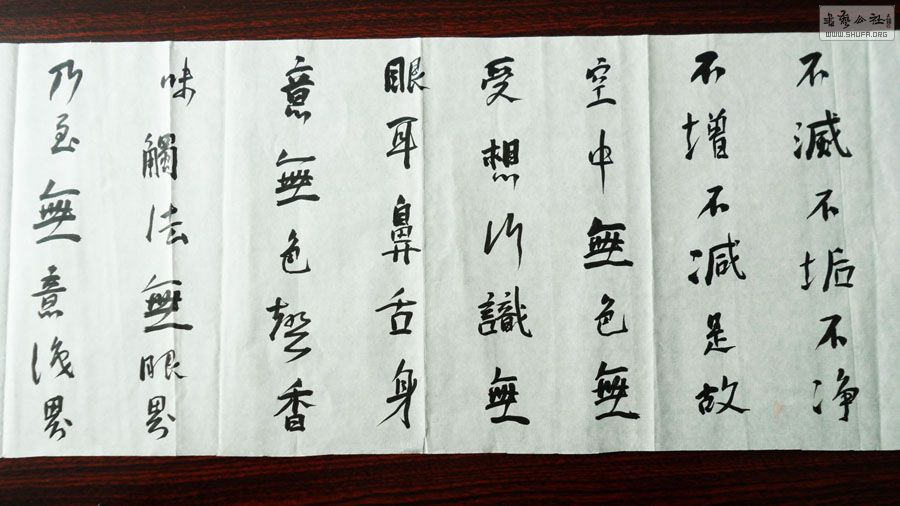 不滅不垢不净
不增不減是故
空中無色無
受想行識無
眼耳鼻舌身
意無色聲香
味觸法無眼界
乃至無意識界
書藝公社
WWW.SHUFA.ORG